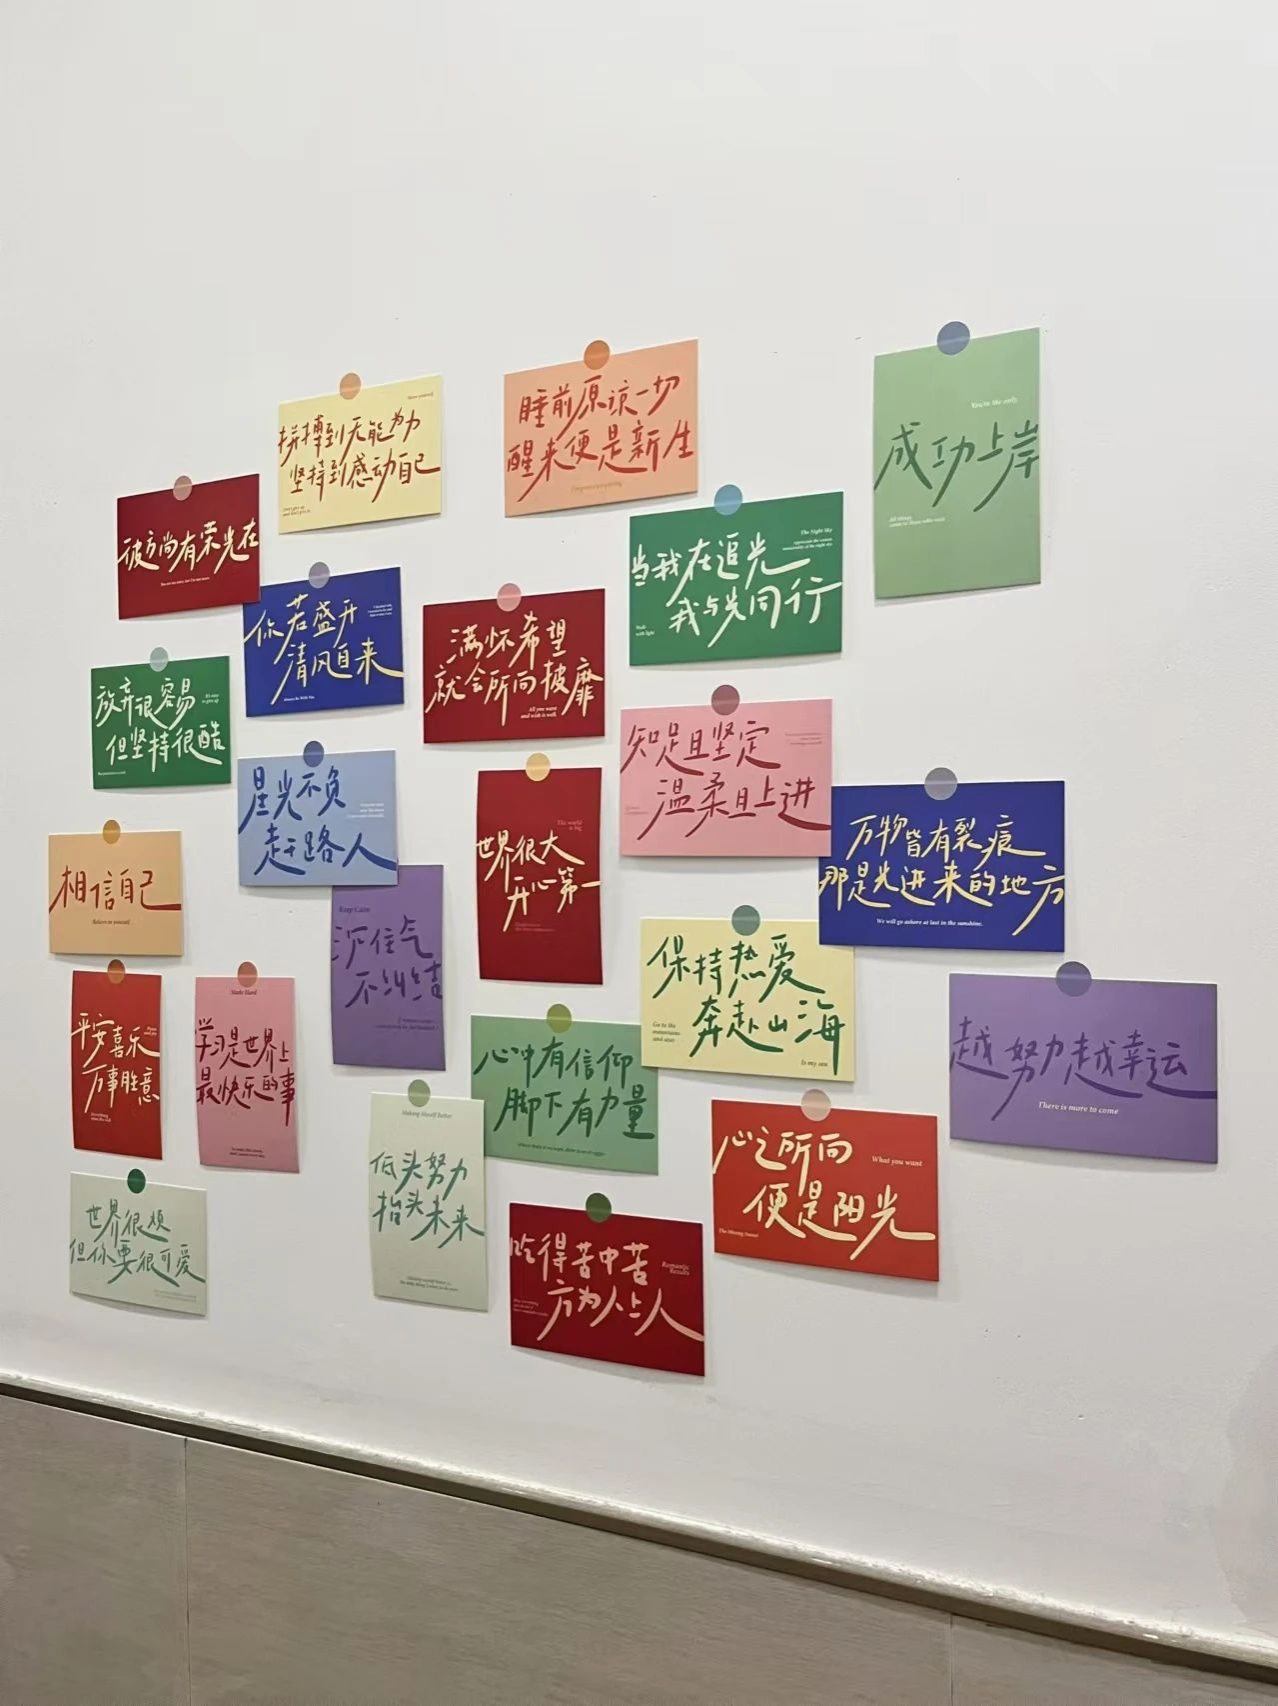 拼搏到无能为力
坚持到感动自己
睡前原谅一切
醒来便是新生
You're the only
成功上岸
彼方尚有荣光在
当我在追光
我与光同行
The Night Sky
Walk
with light
你若盛开
清风自来
满怀希望
就会所向披靡
All you want
and wish is well
放弃很容易
但坚持很酷
It's easy
to give up
知足且坚定
温柔且上进
星光不负
赶路人
世界很大
开心第一
The world
is big
万物皆有裂痕
那是光进来的地方
We will go ashore at last in the sunshine.
相信自己
Believe in yourself
Keep Calm
沉住气
不纠结
保持热爱
奔赴山海
Go to the
mountains
and seas
平安喜乐
万事胜意
学习是世界上
最快乐的事
心中有信仰
脚下有力量
越努力越幸运
There is more to come
Making Myself Better
低头努力
抬头未来
心之所向
便是阳光
What you want
世界很烦
但你要很可爱
吃得苦中苦
方为人上人
Romantic
Results